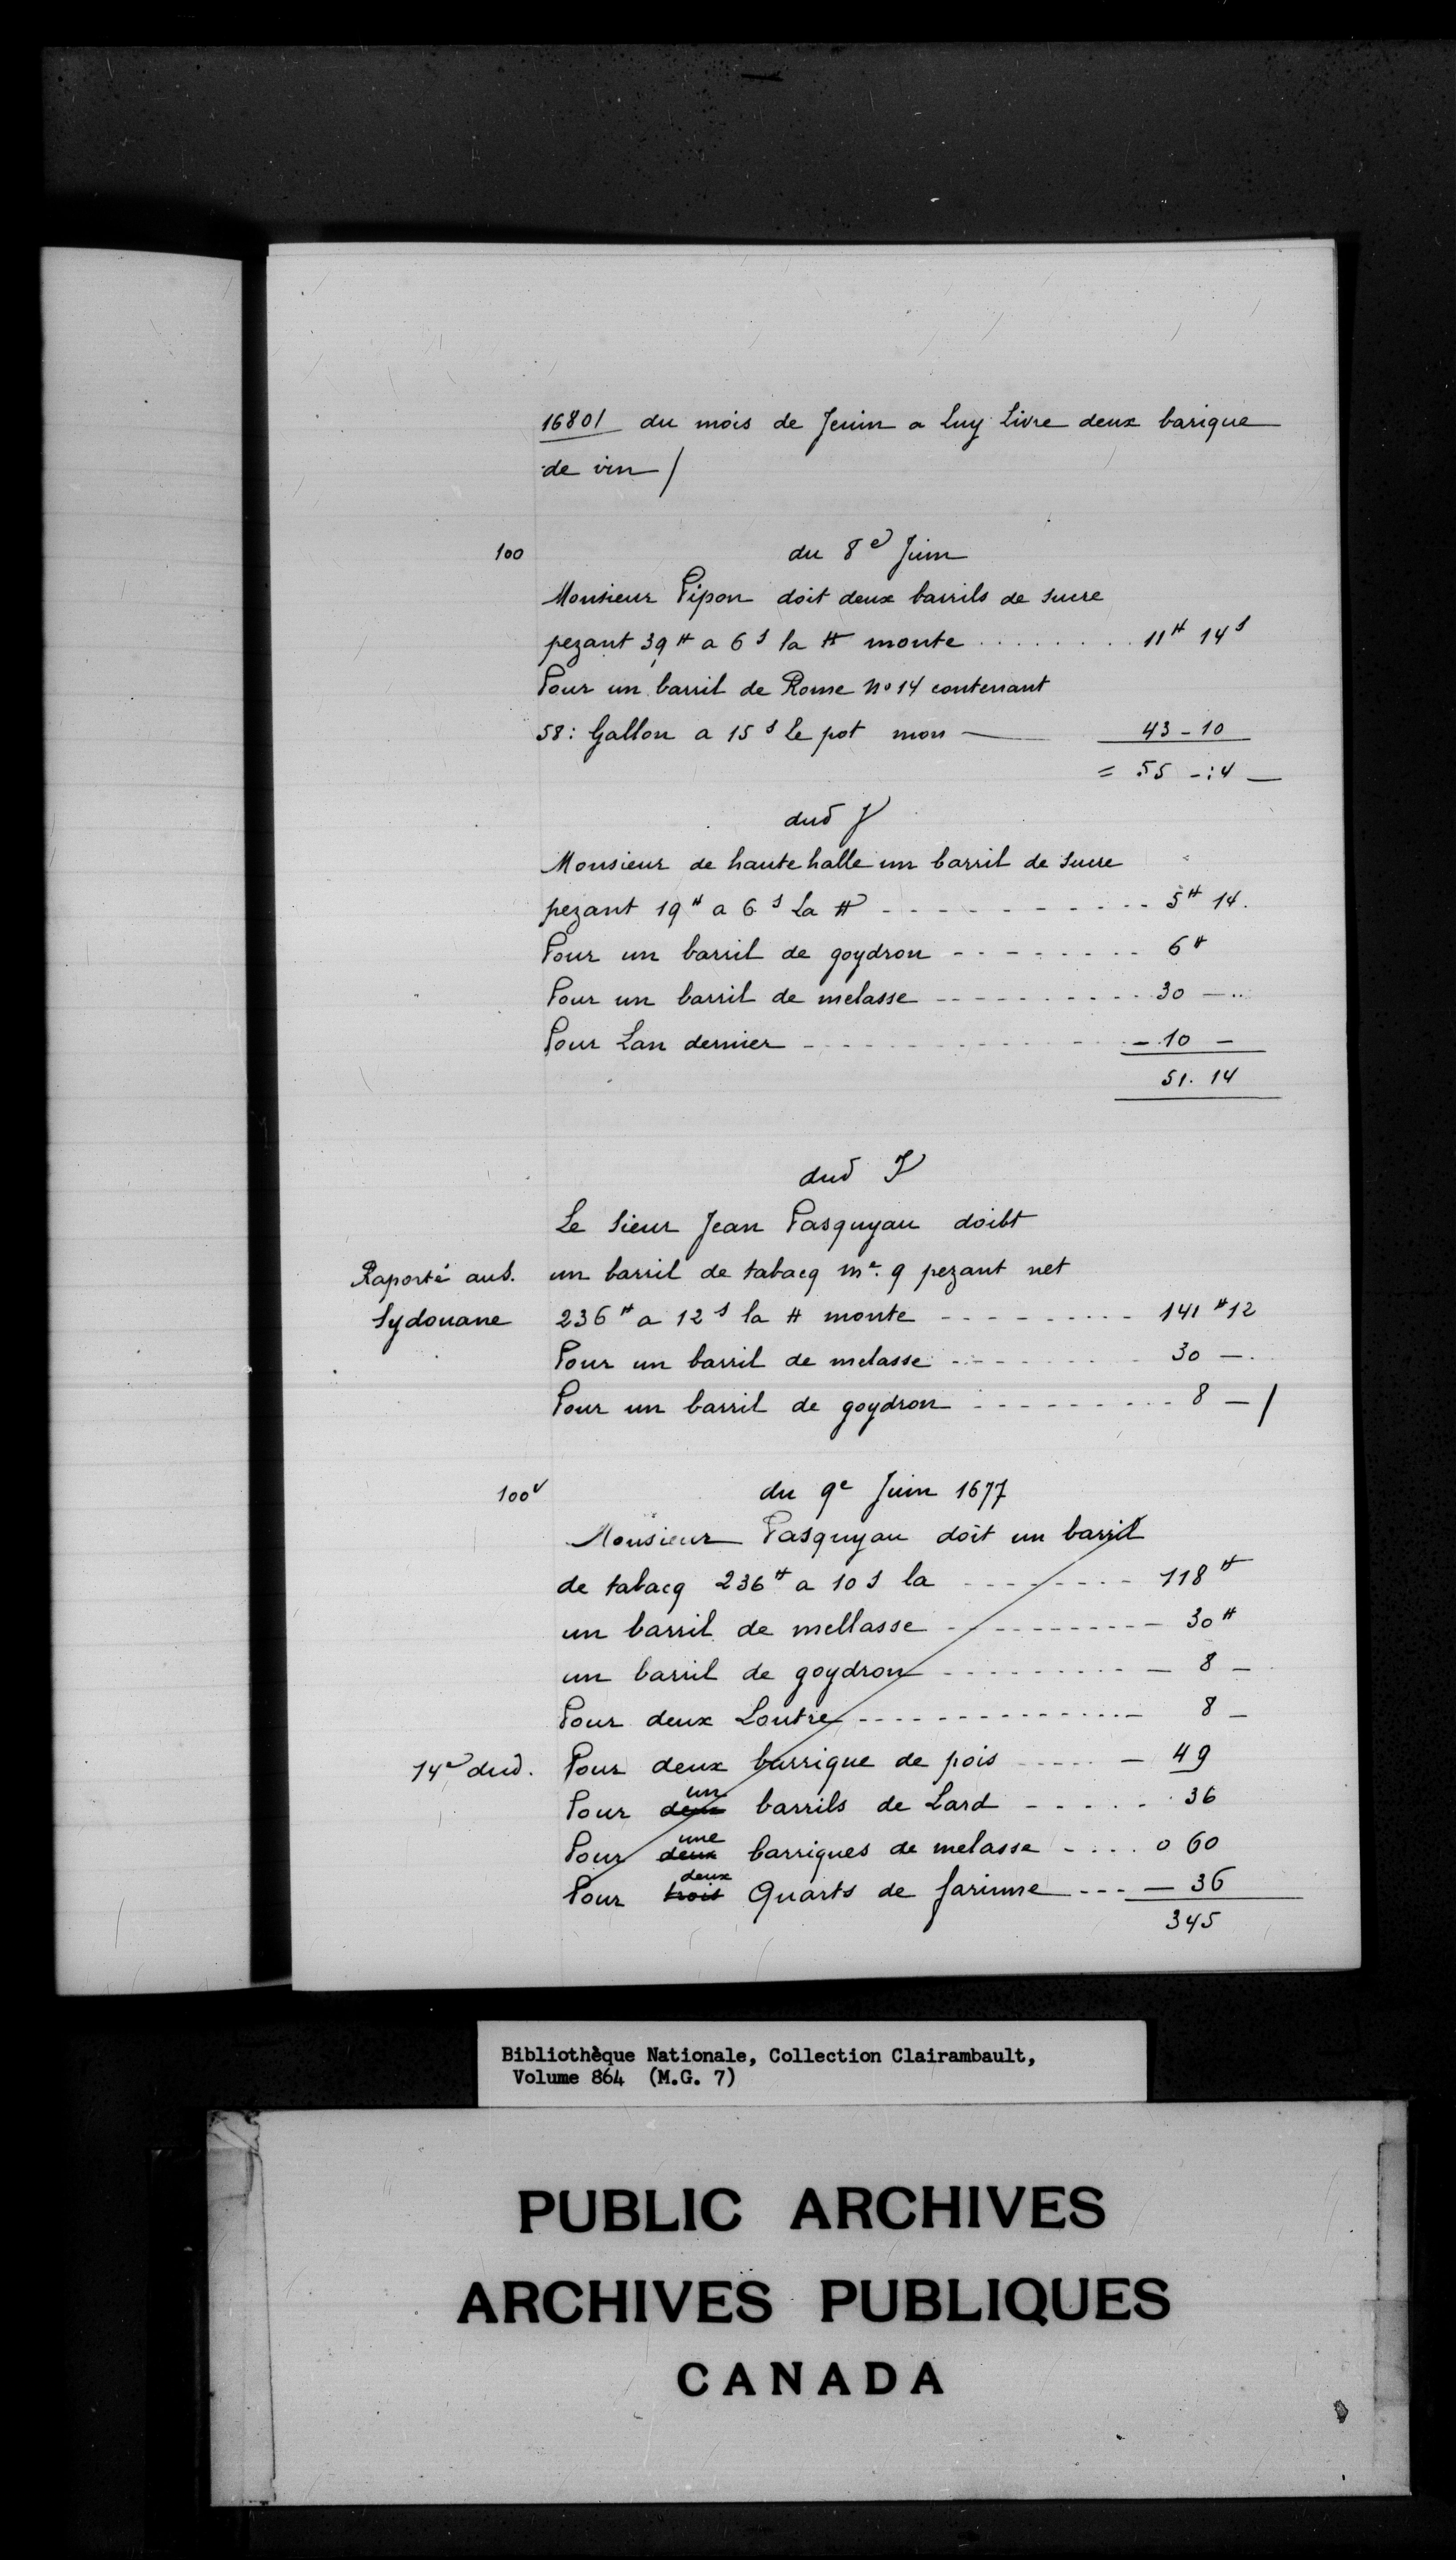 16801 du mois de Jeuin a luy Livre deux barique
de vin /
100 du 8e Juin
Monsieur Pipon doit deux barrils de sucre
pezant 39 # a 6 s la # monte ......... 11# 14s
Pour un barril de Rome No 14 contenant
58: Gallon a 15 s le pot mon — 43 - 10
= 55 -: 4 —
dud J
Monsieur de hautehalle un barril de sucre
pezant 19 # a 6 s La # - - - - - - - - - - 5# 14.
Pour un barril de goydron - - - - - - - - 6#
Pour un barril de melasse - - - - - - - - - - 30 — ..
Pour Lan dernier - - - - - - - - - - - - - 10 -
51. 14
dud J
Le sieur Jean Pasquyau doibt
Raporté au s. un barril de tabacq me. 9 pezant net
Sydouane 236 # a 12 s la # monte - - - - - - - - - 141 # 12
Pour un barril de melasse - - - - - - - - 30 — .
Pour un barril de goydron - - - - - - - - - - 8 — /
100v du 9e Juin 1677
Monsieur Pasquyau doit un barril
de tabacq 236# a 10 s la - - - - - - - - 118 #
un barril de mellasse - - - - - - - - - - - 30 #
un barril de goydron - - - - - - - - - - — 8 —
Pour deux Loutre - - - - - - - - - - - - - - — 8 —
14e dud. Pour deux barrique de pois - - - - - — 49
Pour deux un barrils de Lard - - - - - 36
Pour deux une barriques de melasse - . . . 0 60
Pour trois deux Quarts de farinne - - - — 36
345
Bibliothèque Nationale, Collection Clairambault,
Volume 864 (M.G. 7)
PUBLIC ARCHIVES
ARCHIVES PUBLIQUES
CANADA